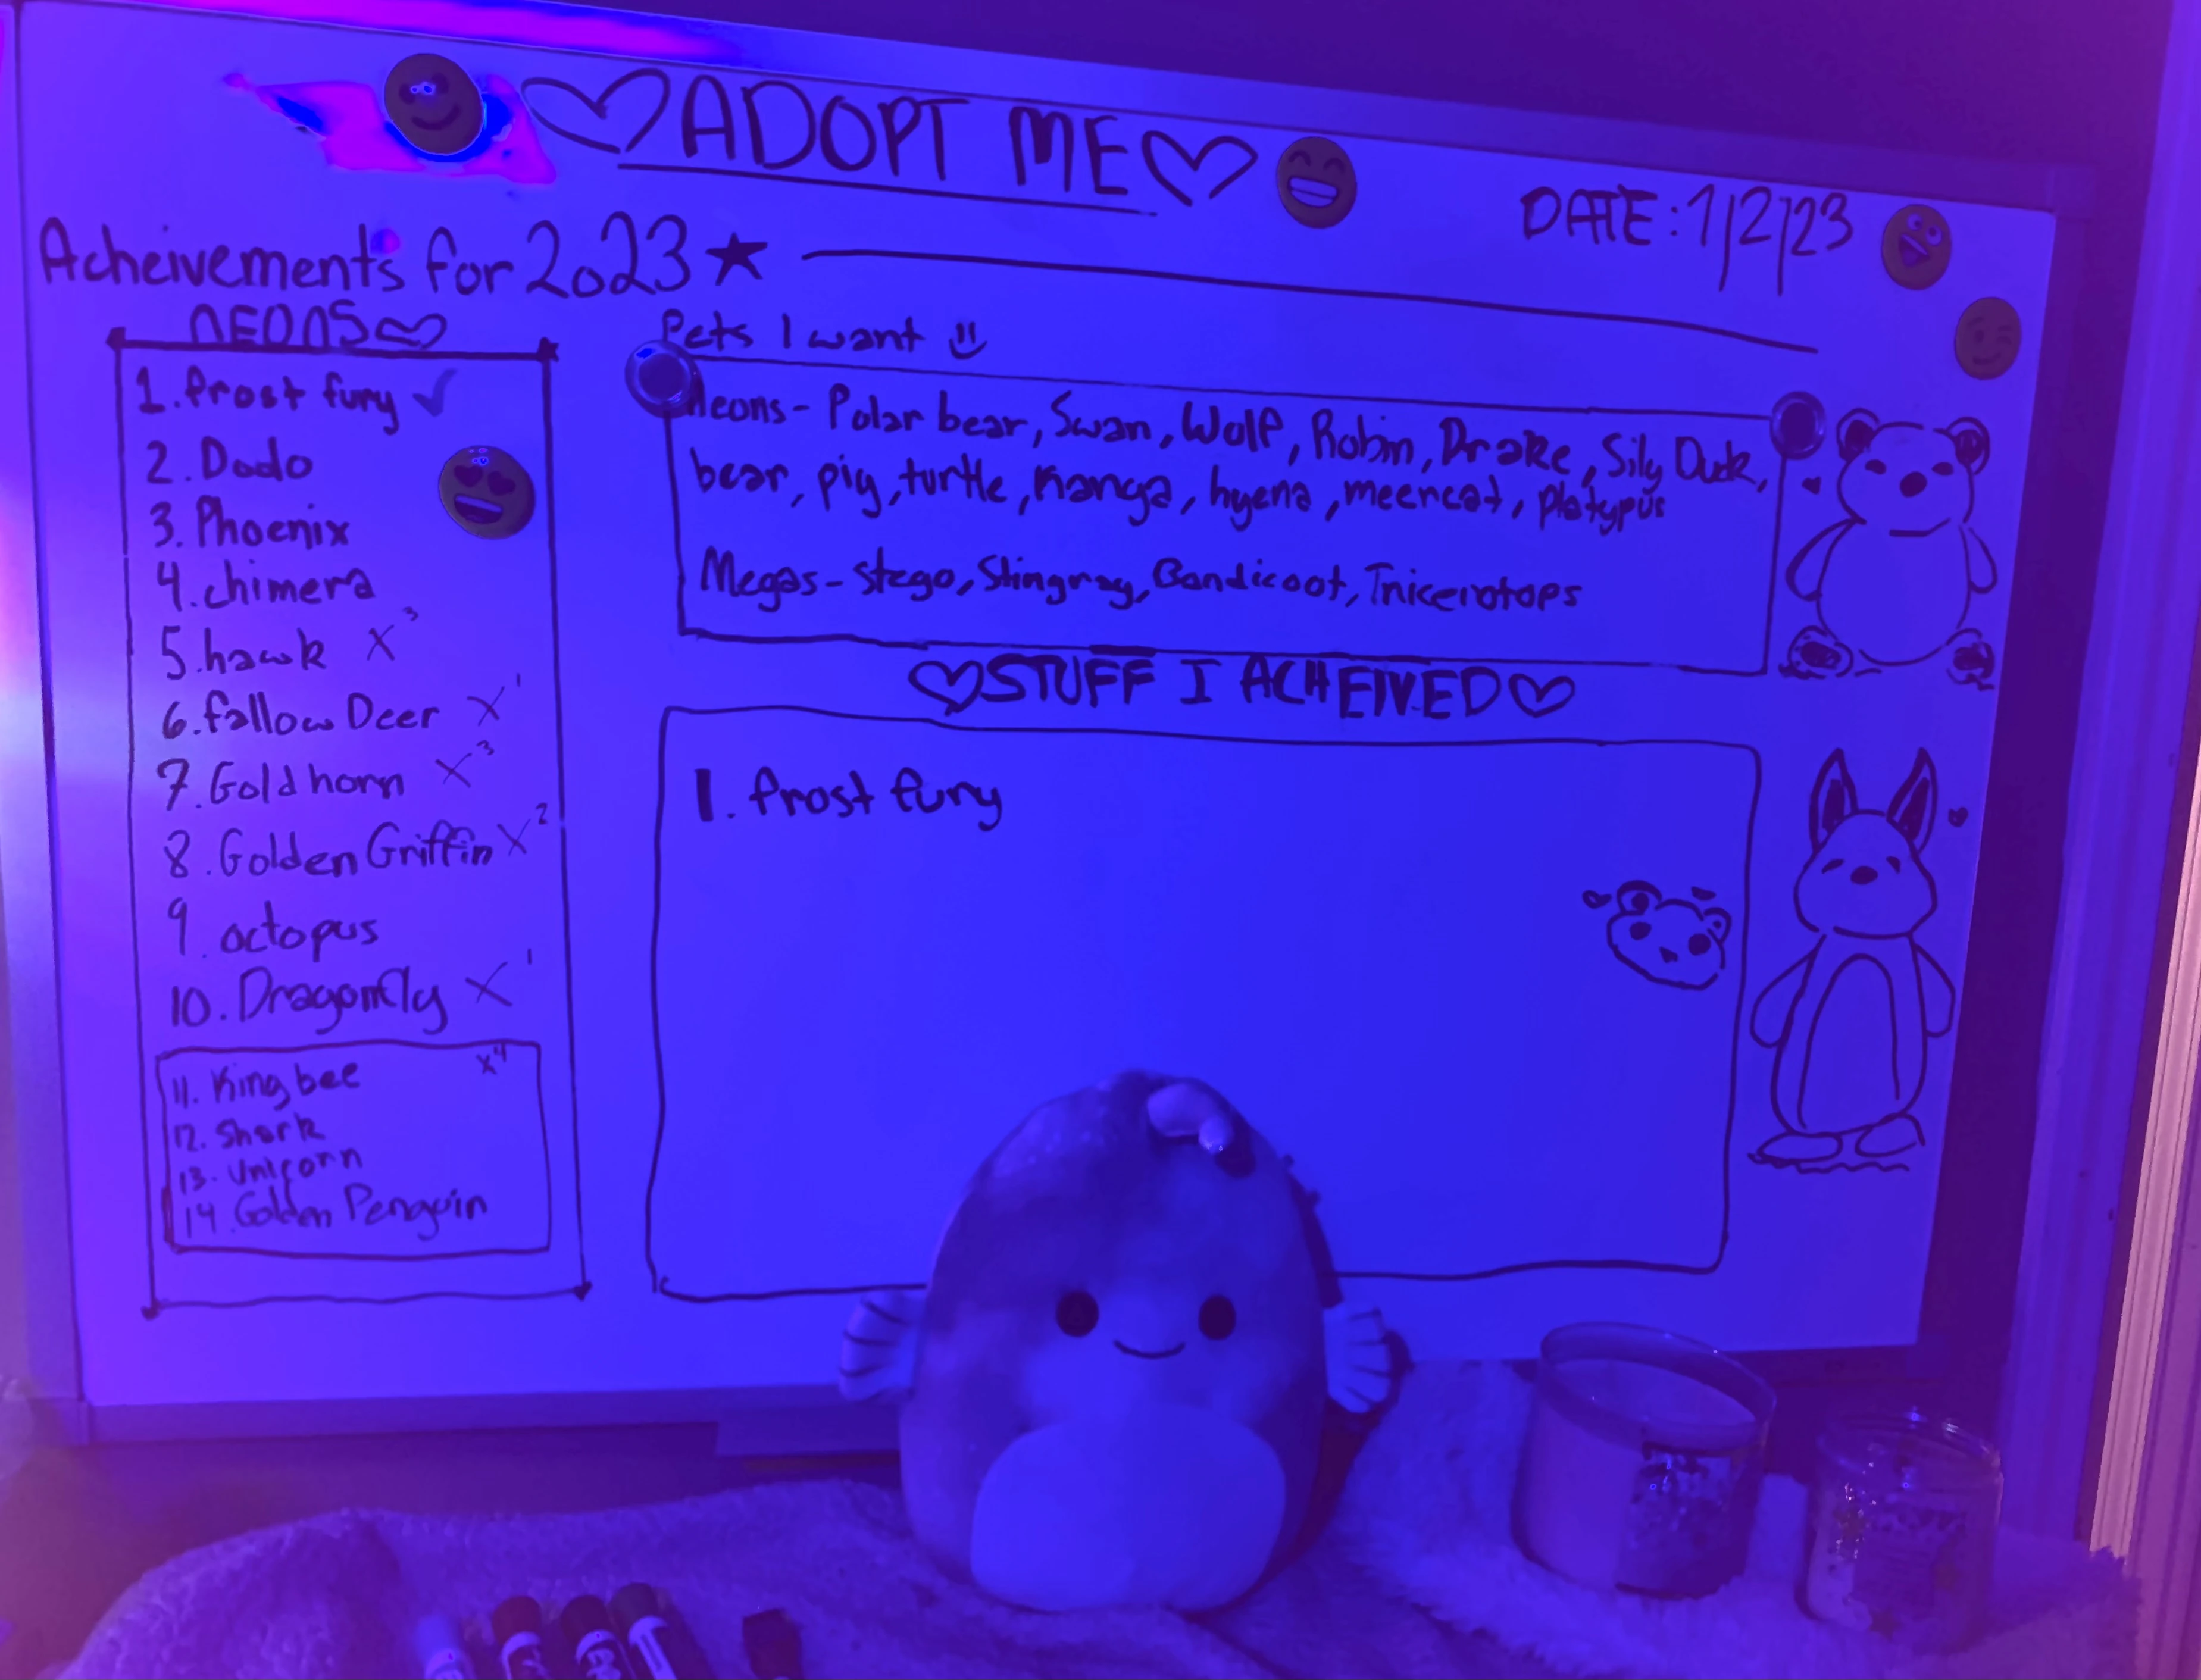 ADOPT ME
DATE: 1/2/23
Acheivements for 2023
NEONS
1. frost fury ✓
2. Dodo
3. Phoenix
4. chimera
5. hawk X 3
6. fallow Deer X 1
7. Gold horn X 3
8. Golden Griffin X 2
9. octopus
10. Dragonfly X 1
11. King bee X 4
12. Shark
13. Unicorn
14. Golden Penguin
Pets I want
Neons - Polar bear, Swan, Wolf, Robin, Drake, Sily Duck,
bear, pig, turtle, Kanga, hyena, meercat, platypus
Megas - Stego, Stingray, Bandicoot, Tricerotops
STUFF I ACHEIVED
1. frost fury